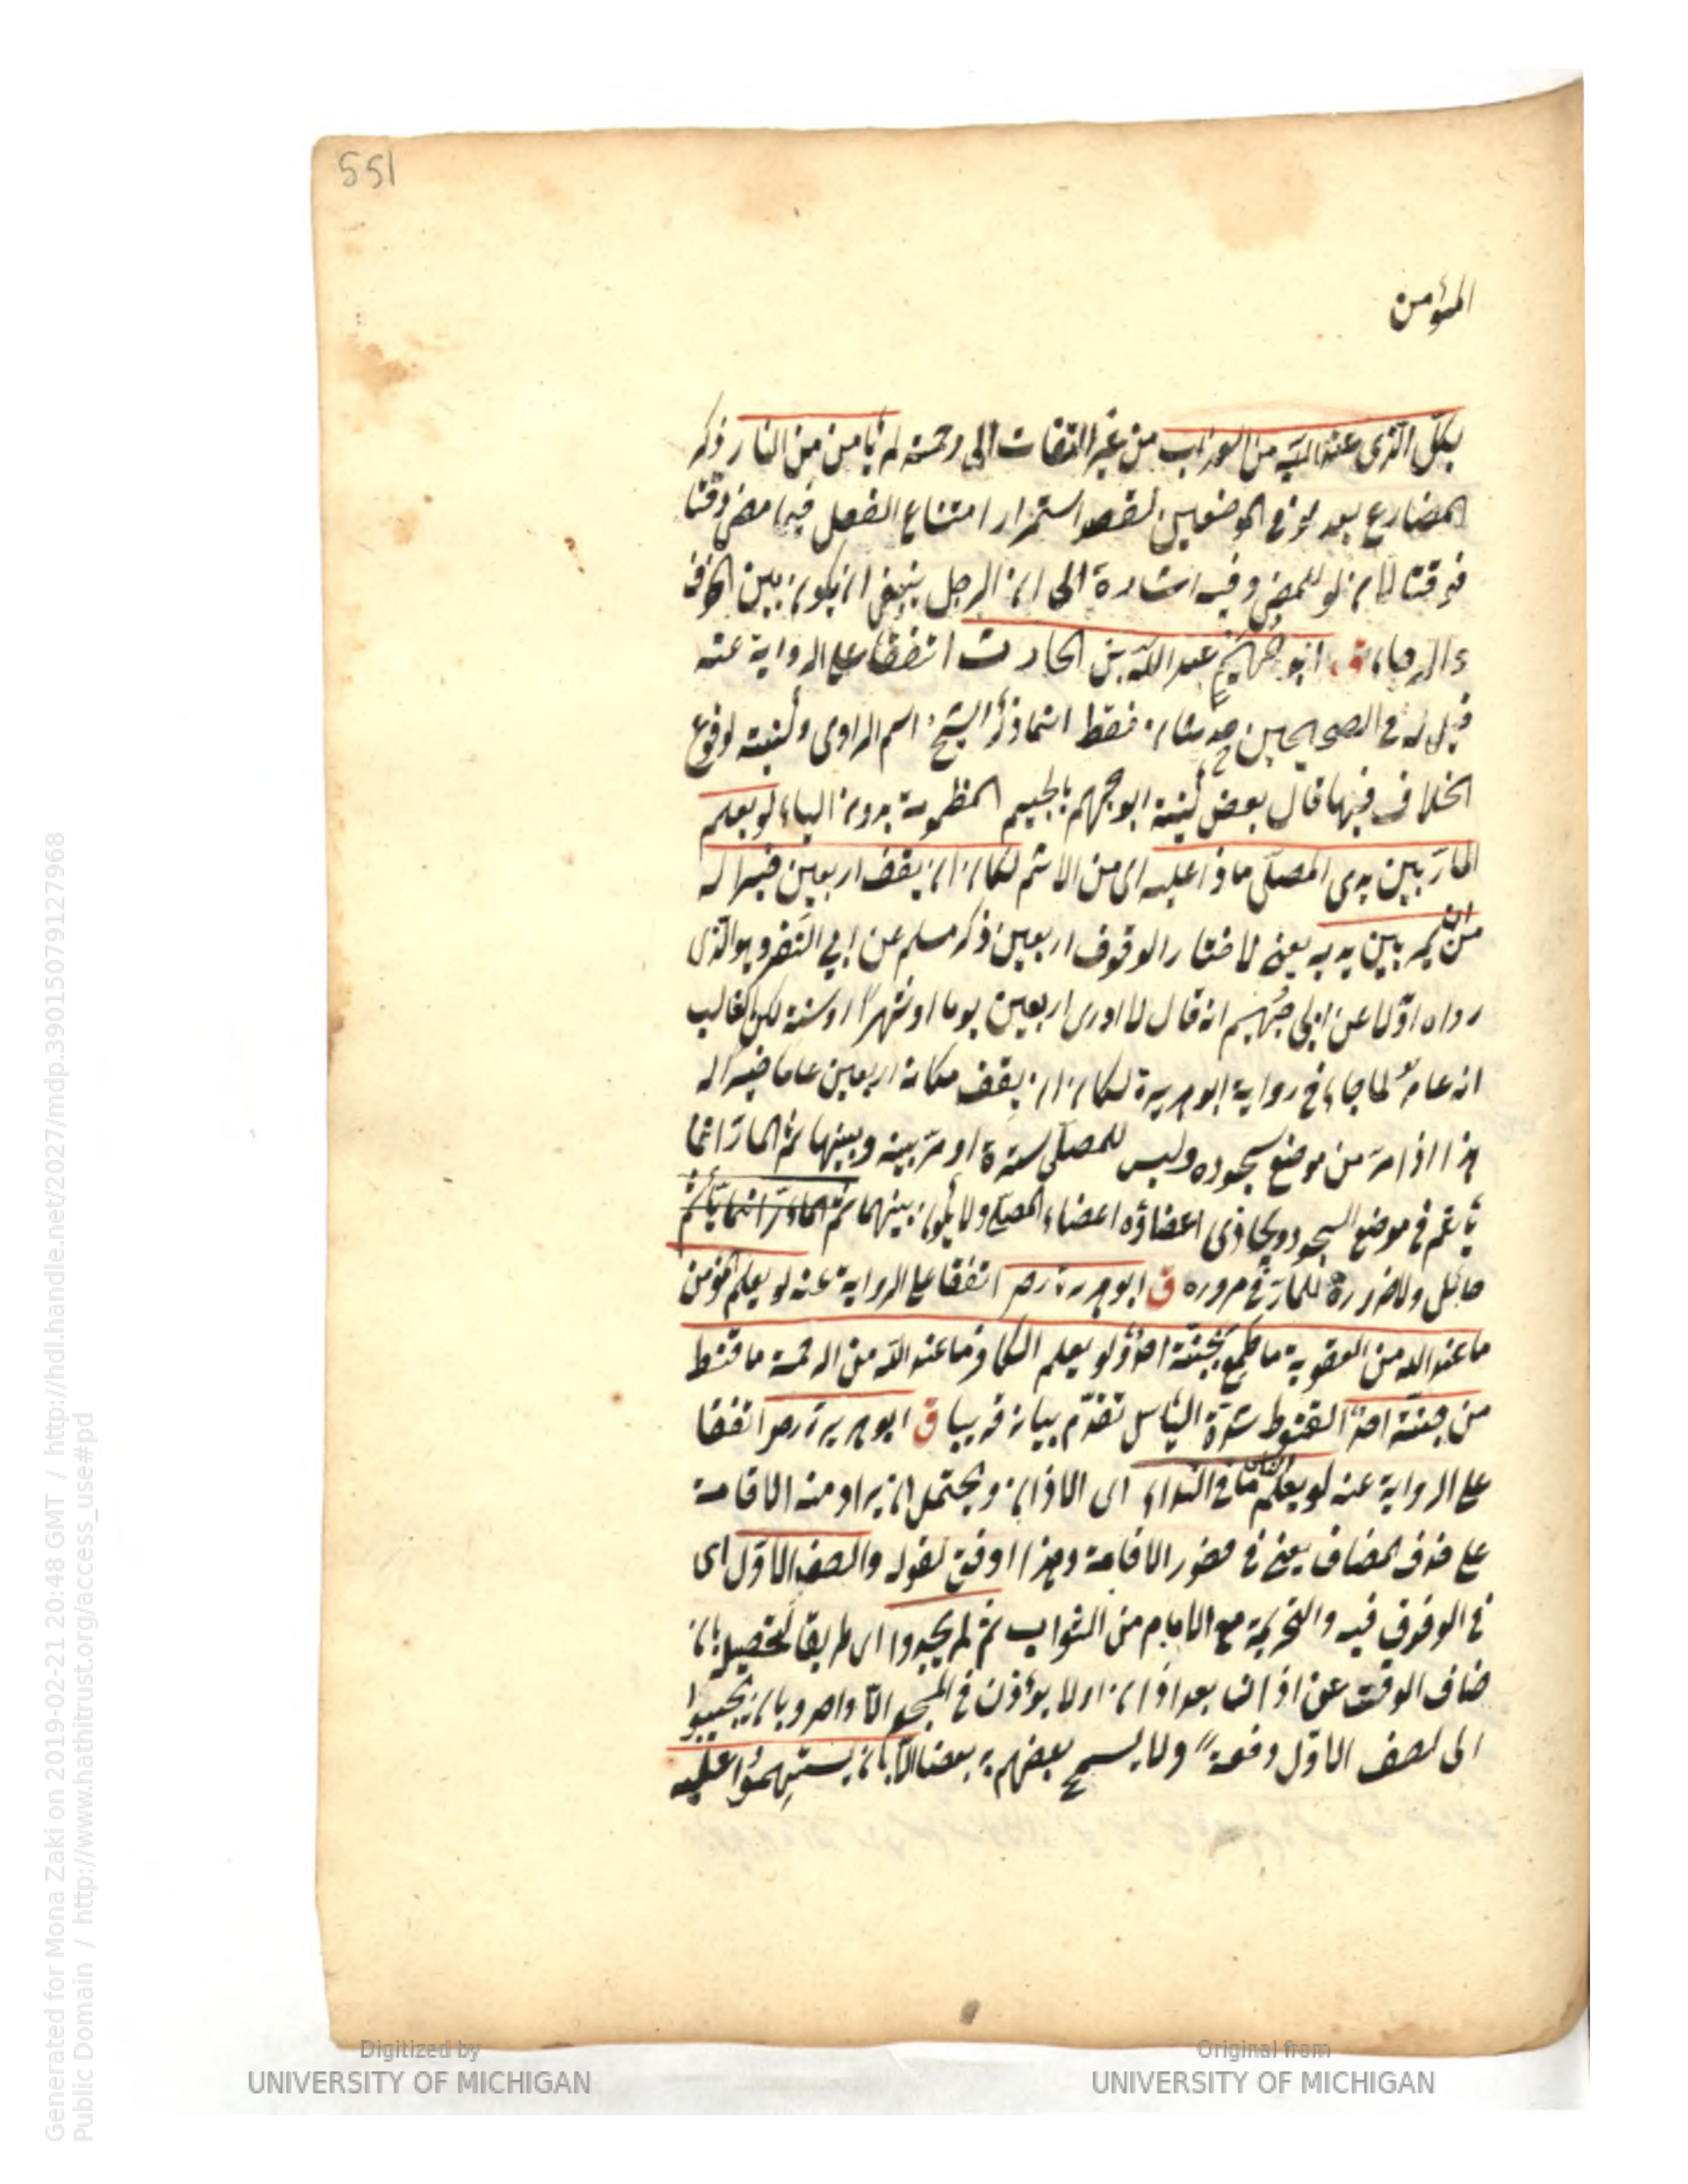 551
المؤمن
بكل الذى عند الله من العذاب من غير التفات الى رحمته لم يأمن من النار ذكر
المضارع بعد لو فى الموضعين لقصد استمرار امتناع الفعل فيما مضى وقتا
فوقتا لان لو للمضى وفيه اشارة الى ان الرجل ينبغى ان يكون بين الخوف
والرجاء ق ابو جهيم عبد الله بن الحارث اتفقا على الرواية عنه
قيل له فى الصحيحين حديثان فقط انما ذكر الشيخ اسم الراوى وكنيته لوقوع
الخلاف فيها قال بعض كنيته ابو جهم بالجيم المظمومة بدون الياء لو يعلم
المارّ بين يدى المصلّى ماذا عليه اى من الاثم لكان ان يقف اربعين خيرا له
من ان يمر بين يديه يعنى لاختار الوقوف اربعين ذكر مسلم عن ابي النضر وهو الذى
رواه اوّلا عن ابى جهيم انه قال لا ادرى اربعين يوما او شهرا او سنة لكن الغالب
انه عام لما جاء فى رواية ابو هريرة لكان ان يقف مكانه اربعين عاما خيرا له
هذا اذا مرّ من موضع سجوده وليس للمصلّى سترة او مرّ بينه وبينها ثم المارّ انما
يأثم فى موضع السجود ويحاذى اعضاؤه اعضاء المصلّى ولا يكون بينهما ثم المارّ انما يأثم
حائل ولا ضرورة للمارّ فى مروره ق ابو هريرة رضـ اتفقا على الرواية عنه لو يعلم المؤمن
ما عند الله من العقوبة ما طمع بجنته احدٌ ولو يعلم الكافر ما عند الله من الرحمة ما قنط
من جنته احدٌ القنوط شدّة اليأس تقدّم بيانه قريبا ق ابو هريرة رضـ اتفقا
على الرواية عنه لو يعلم الناس ما فى النداء اى الاذان ويحتمل ان يراد منه الاقامة
على حذف المضاف يعنى فى حضور الاقامة وهذا اوفق لقوله والصف الاوّل اى
فى الوقوف فيه والتحريمة مع الامام من الثواب ثم لم يجدوا اى طريقا لتحصيله بان
ضاق الوقت عن اذان بعد اذان او لا يؤذن فى المسجد الّا واحد وبان يجيبوا
الى لصف الاوّل دفعةً ولا يسمح بعضهم به بعضا الّا بان يستهموا عليه
Generated for Mona Zaki on 2019-02-21 20:48 GMT / http://hdl.handle.net/2027/mdp.39015079127968
Public Domain / http://www.hathitrust.org/access_use#pd
Digitized by
UNIVERSITY OF MICHIGAN
Original from
UNIVERSITY OF MICHIGAN